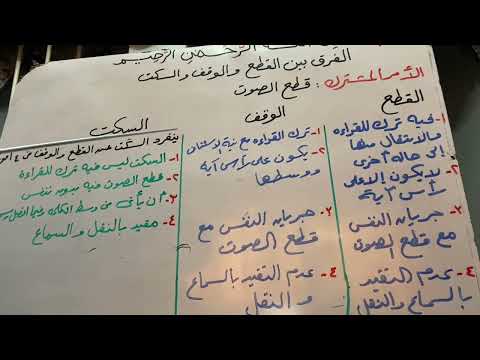 الرحمن الرحيم
الفرق بين القطع والوقف والسكت
الأمر المشترك : قطع الصوت
القطع
١- فيه ترك للقراءة
والانتقال منها
إلى حالة أخرى
٢- لا يكون إلا على
رأس آية
٣- جريان النفس
مع قطع الصوت
٤- عدم التقيد
بالسماع والنقل
الوقف
١- ترك القراءة مع نية الاستئناف
٢- يكون على رأس آية
ووسطها
٣- جريان النفس مع
قطع الصوت
٤- عدم التقيد بالسماع
والنقل
السكت
ينفرد السكت عن القطع والوقف في ٤ أمور
١- السكت ليس فيه ترك للقراءة
٢- قطع الصوت فيه بدون تنفس
٣- أن يأتي في وسط الكلمة وفيما
٤- مقيد بالنقل والسماع